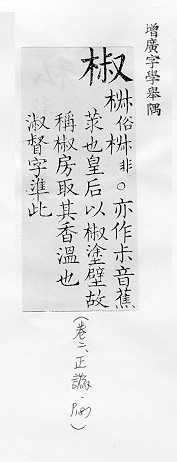 增廣字學舉隅
椒
俗 非○亦作尗音蕉
也皇后以椒塗壁故
稱椒房取其香溫也
淑督字準此
(卷二、正譌、)